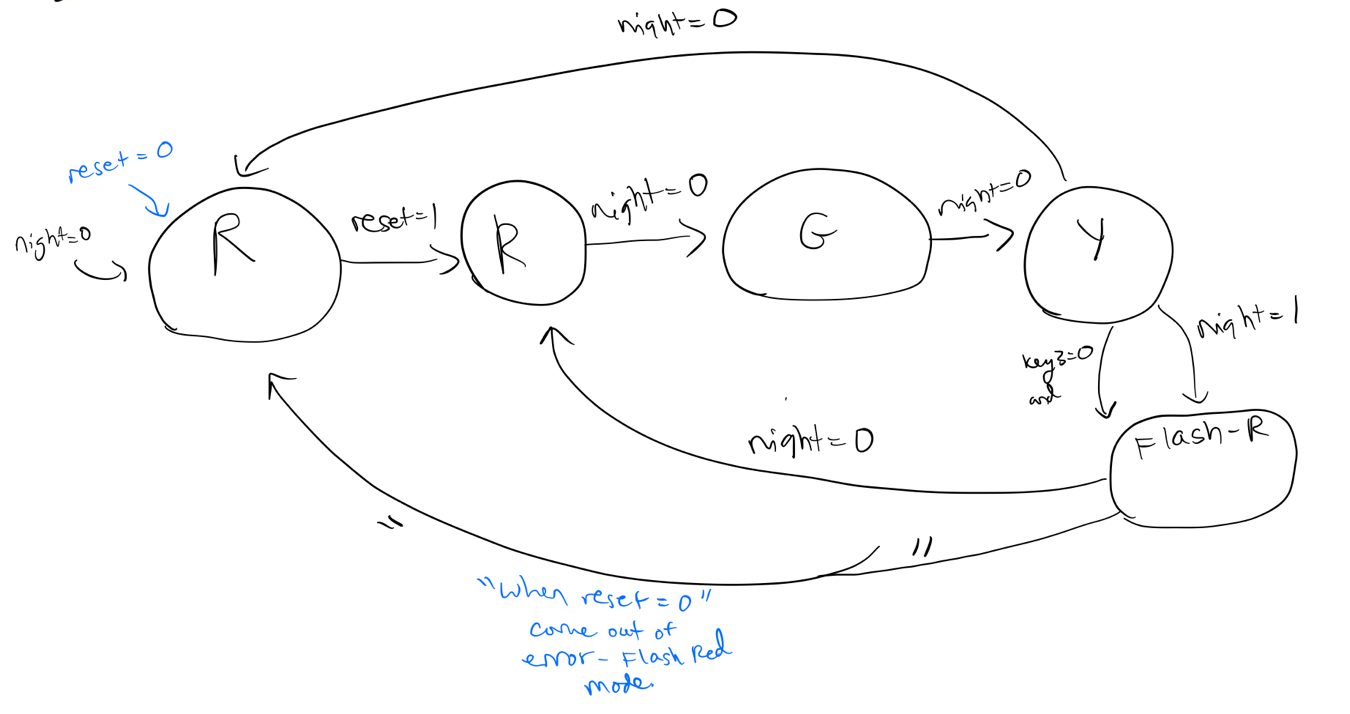 night=0
reset=0
night=0
R
reset=1
R
night=0
G
night=0
Y
night=1
key3=0
and
Flash-R
night=0
"
"
"When reset=0"
come out of
error-Flash Red
mode.